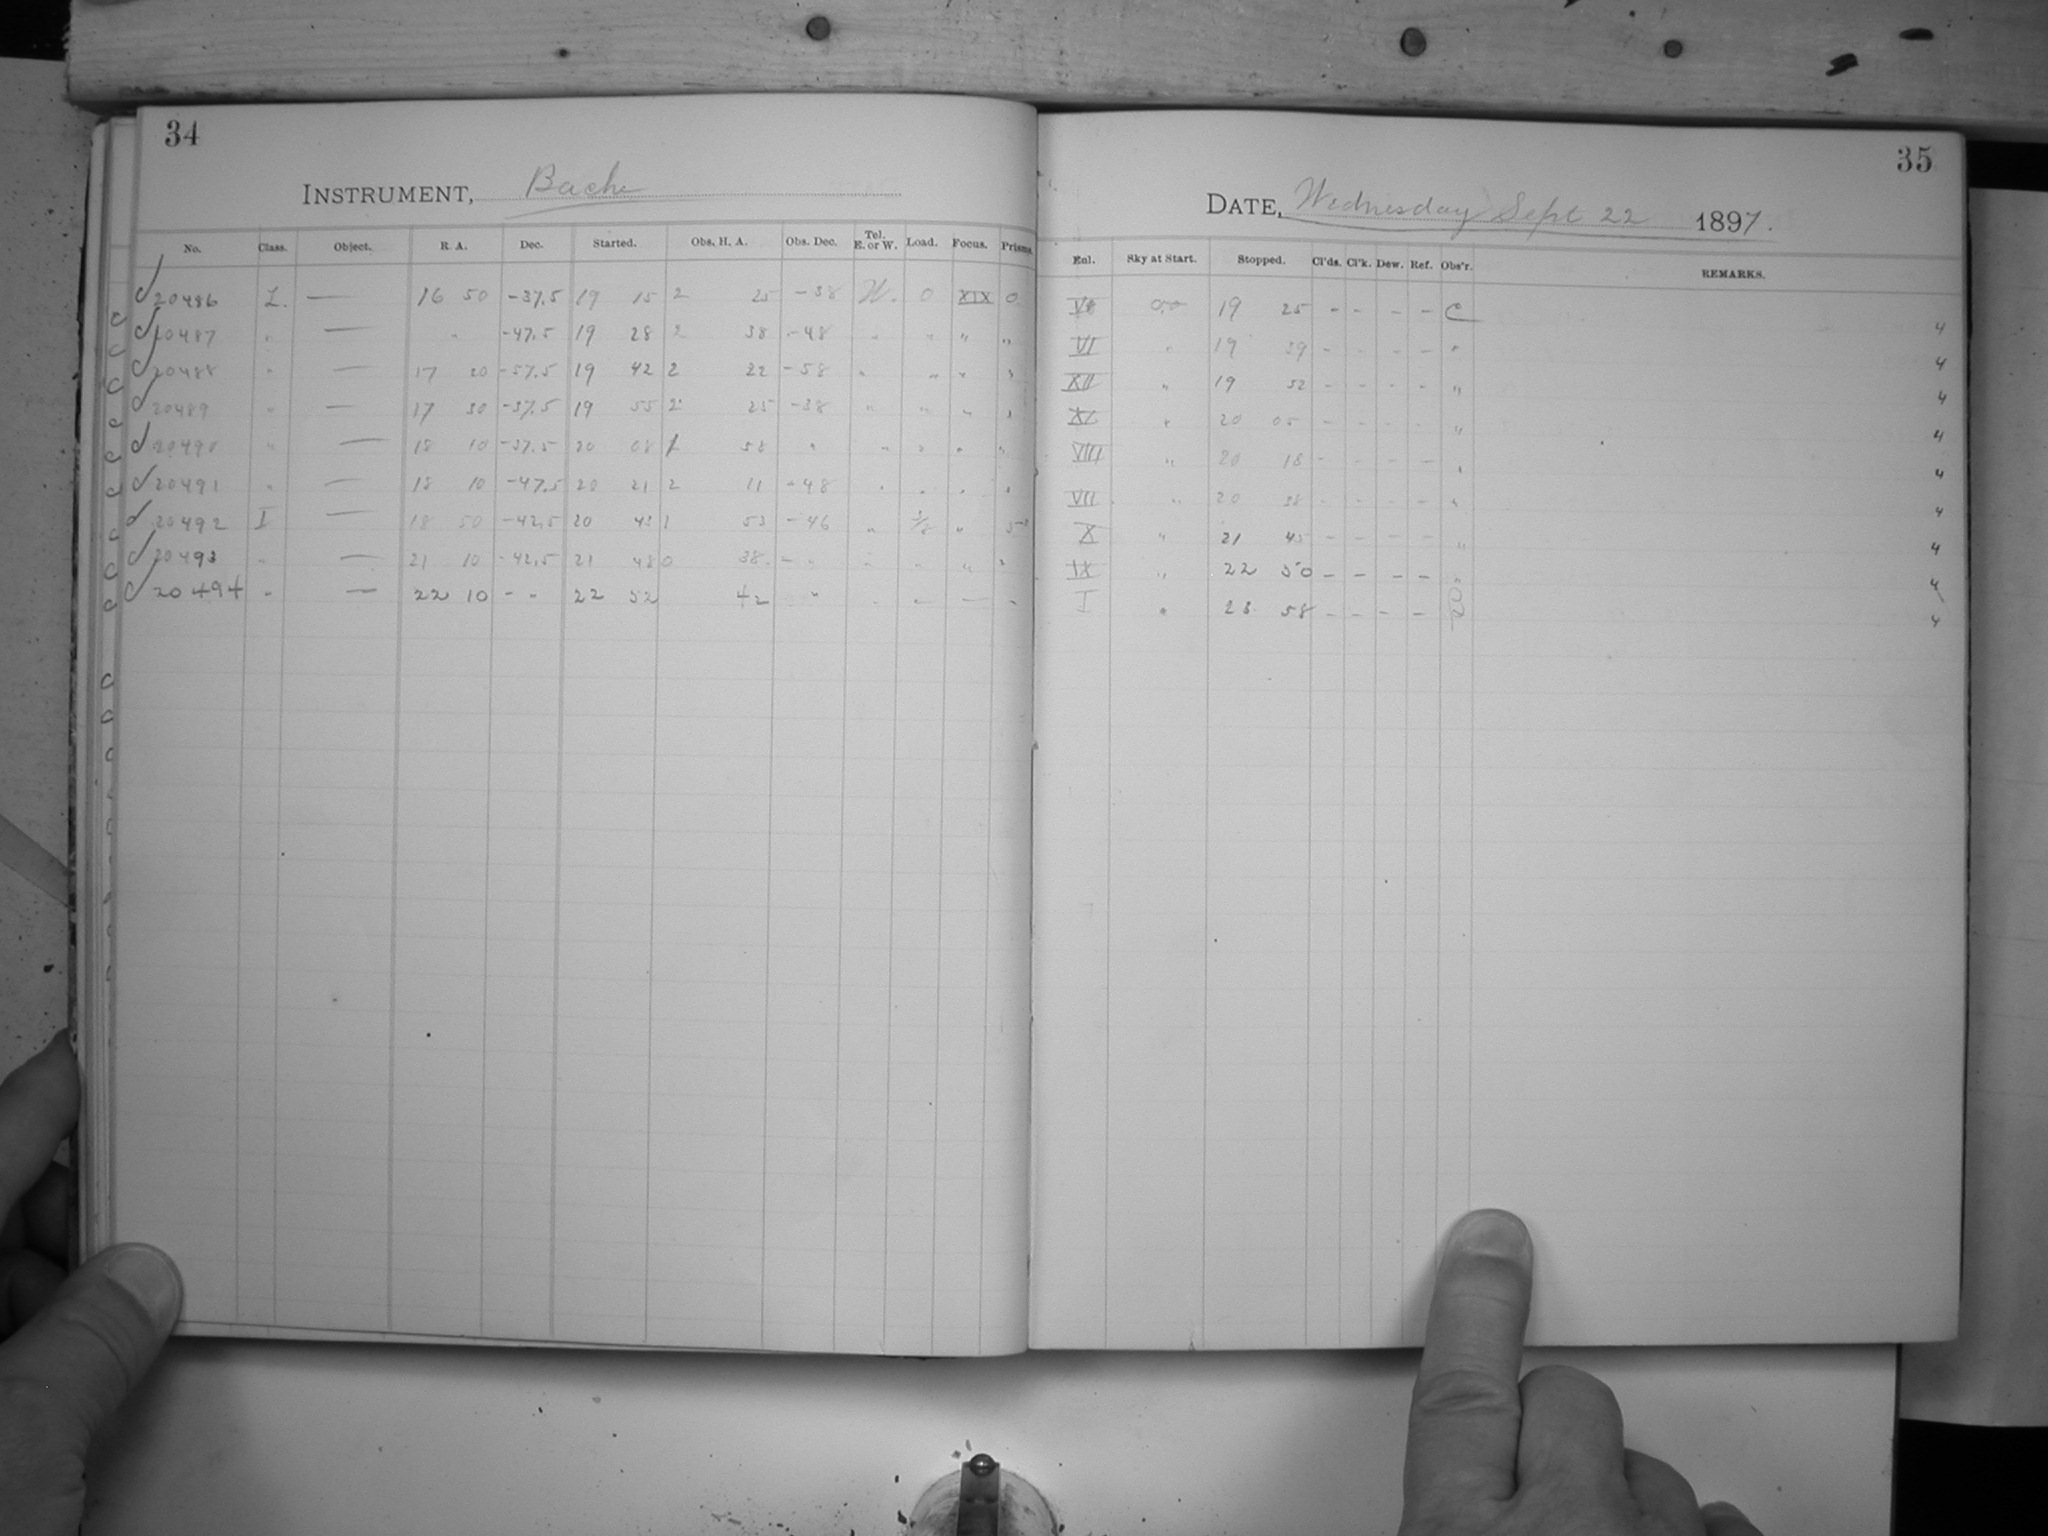 34
INSTRUMENT, Bache
No. Class. Object. R. A. Dec. Started. Obs. H. A. Obs. Dec. Tel. E. or W. Load. Focus. Prisms.
20486 L. — 16 50 -37.5 19 15 2 25 -38 W. 0 XIX 0
20487 " — " -47.5 19 28 2 38 -48 " " " "
20488 " — 17 20 -57.5 19 42 2 22 -58 " " " "
20489 " — 17 30 -37.5 19 55 2 25 -38 " " " "
20490 " — 18 10 -37.5 20 08 1 58 " " " " "
20491 " — 18 10 -47.5 20 21 2 11 -48 " " " "
20492 I — 18 50 -42.5 20 43 1 53 -46 " "
20493 " — 21 10 -42.5 21 48 0 38 - " " " " "
20494 " — 22 10 - " 22 52 42 " " - — -
35
DATE, Wednesday Sept 22 1897.
Enl. Sky at Start. Stopped. Cl'ds. Cl'k. Dew. Ref. Obs'r. REMARKS.
0.0 19 25 - - - - C 4
VI " 19 39 - - - - " 4
XII " 19 52 - - - - " 4
" 20 05 - - - - " 4
VIII " 20 18 - - - - " 4
VII " 20 38 - - - - " 4
X " 21 45 - - - - " 4
IX " 22 50 - - - - " 4
I " 23 58 - - - - 4